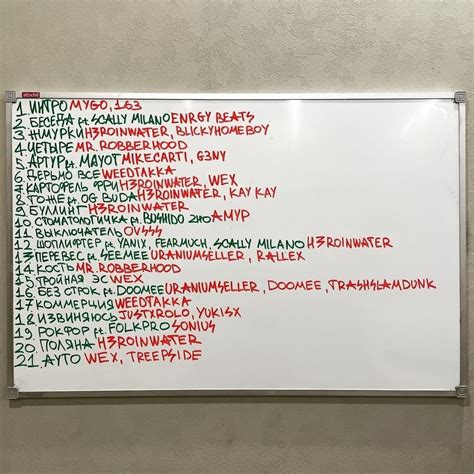 attache
1 ИНТРО MYGO, 163
2. БЕСЕДА ft. SCALLY MILANO ENRGY BEATS
3. ЖМУРКИ H3ROINWATER, BLICKYHOMEBOY
4 ЧЕТЫРЕ MR. ROBBERHOOD
5. АРТУР ft. MAYOT MIKECARTI, G3NY
6 ДЕРЬМО ВСЕ WEEDTAKKA
7. КАРТОФЕЛЬ ФРИ H3ROINWATER, WEX
8 ТОЖЕ ft. OG BUDA H3ROINWATER, KAY KAY
9 БУЛЛИНГ H3ROINWATER
10 СТОМАТОЛОГИЧКА ft. BUSHIDO ZHO АМУР
11 ВЫКЛЮЧАТЕЛЬ OV$$$
12 ШОПЛИФТЕР ft. YANIX, FEARMUCH, SCALLY MILANO H3ROINWATER
13 ПЕРЕВЕС ft. SEEMEE URANIUMSELLER, RALLEX
14 КОСТЬ MR. ROBBERHOOD
15 ТРОЙНАЯ ЭС WEX
16 БЕЗ СТРОК ft. DOOMEE URANIUMSELLER, DOOMEE, TRASHSLAMDUNK
17 КОММЕРЦИЯ WEEDTAKKA
18 ИЗВИНЯЮСЬ JUSTXROLO, YUKISX
19 РОКФОР ft. FOLKPRO SONIUS
20. ПОЛЯНА H3ROINWATER
21. АУТО WEX, TREEPSIDE